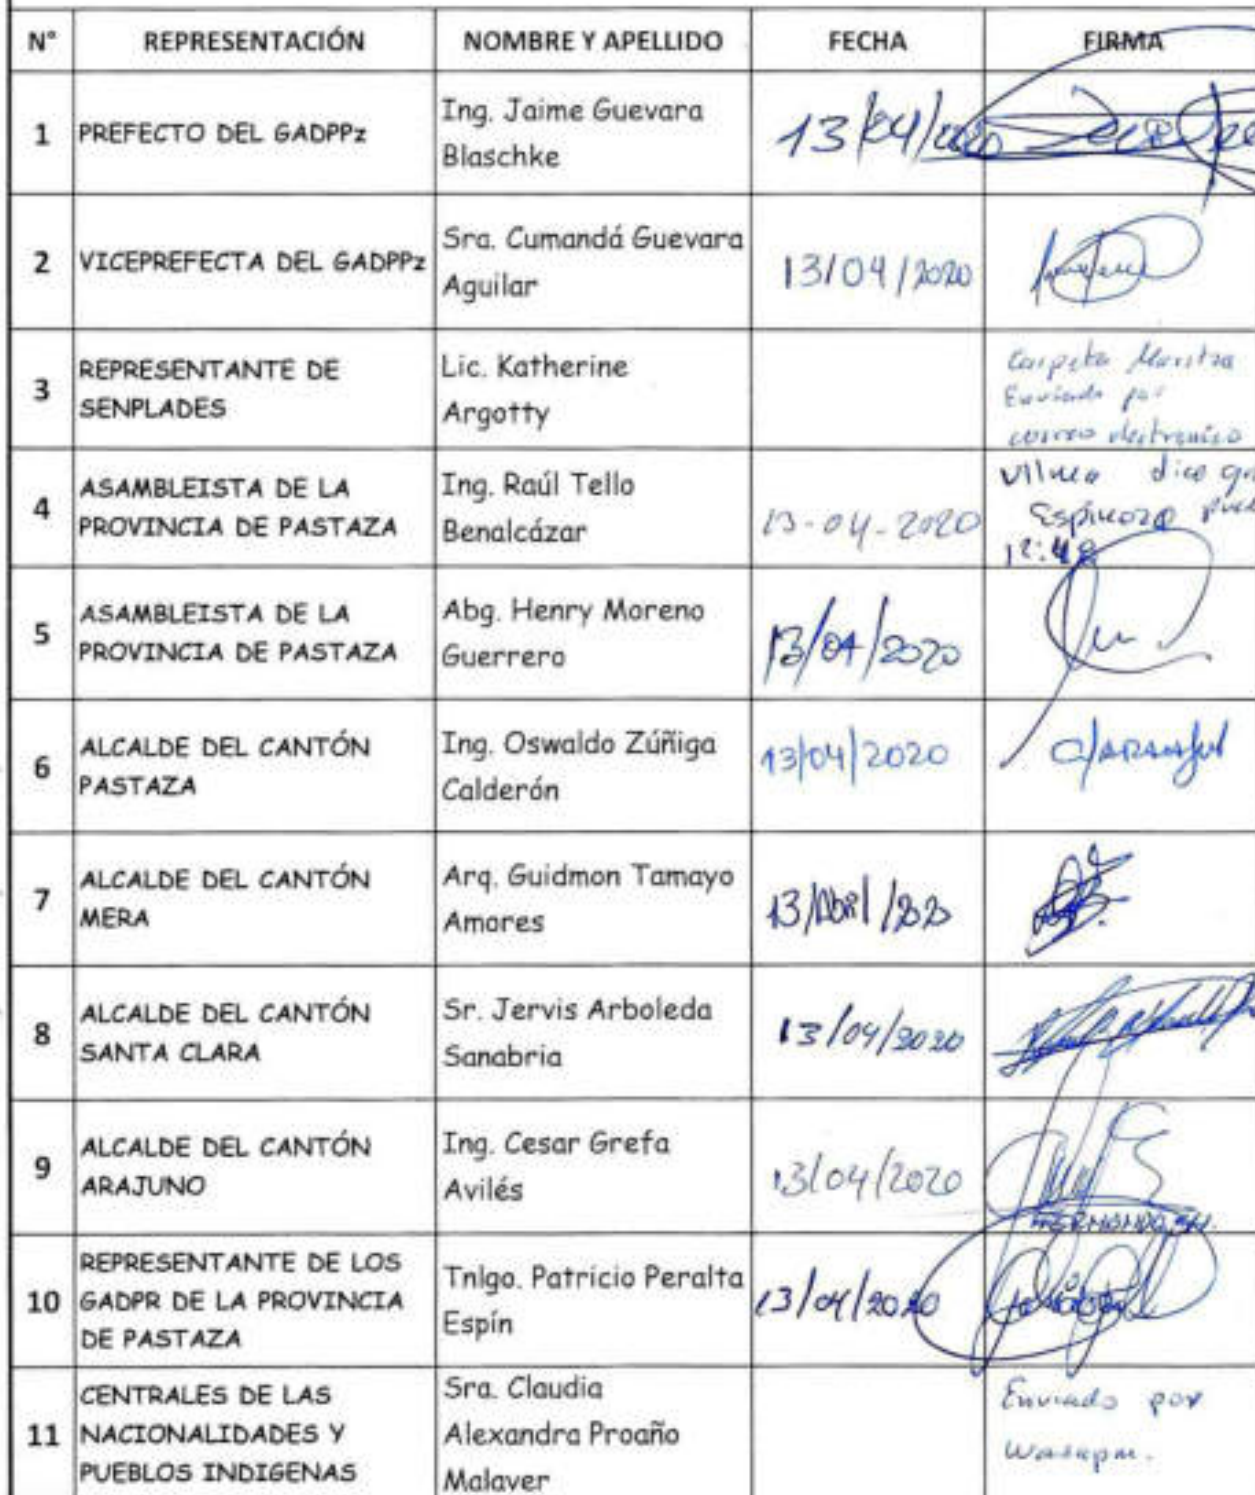 N° REPRESENTACIÓN NOMBRE Y APELLIDO FECHA FIRMA
1 PREFECTO DEL GADPPz Ing. Jaime Guevara Blaschke 13/04/2020
2 VICEPREFECTA DEL GADPPz Sra. Cumandá Guevara Aguilar 13/04/2020
3 REPRESENTANTE DE SENPLADES Lic. Katherine Argotty Carpeta Maritza Enviado por correo electronico
4 ASAMBLEISTA DE LA PROVINCIA DE PASTAZA Ing. Raúl Tello Benalcázar 13-04-2020 Vilma dice que Espinoza 12:48
5 ASAMBLEISTA DE LA PROVINCIA DE PASTAZA Abg. Henry Moreno Guerrero 13/04/2020
6 ALCALDE DEL CANTÓN PASTAZA Ing. Oswaldo Zúñiga Calderón 13/04/2020
7 ALCALDE DEL CANTÓN MERA Arq. Guidmon Tamayo Amores 13/Abril/2020
8 ALCALDE DEL CANTÓN SANTA CLARA Sr. Jervis Arboleda Sanabria 13/04/2020
9 ALCALDE DEL CANTÓN ARAJUNO Ing. Cesar Grefa Avilés 13/04/2020 HERMONDO SH.
10 REPRESENTANTE DE LOS GADPR DE LA PROVINCIA DE PASTAZA Tnlgo. Patricio Peralta Espín 13/04/2020
11 CENTRALES DE LAS NACIONALIDADES Y PUEBLOS INDIGENAS Sra. Claudia Alexandra Proaño Malaver Enviado por